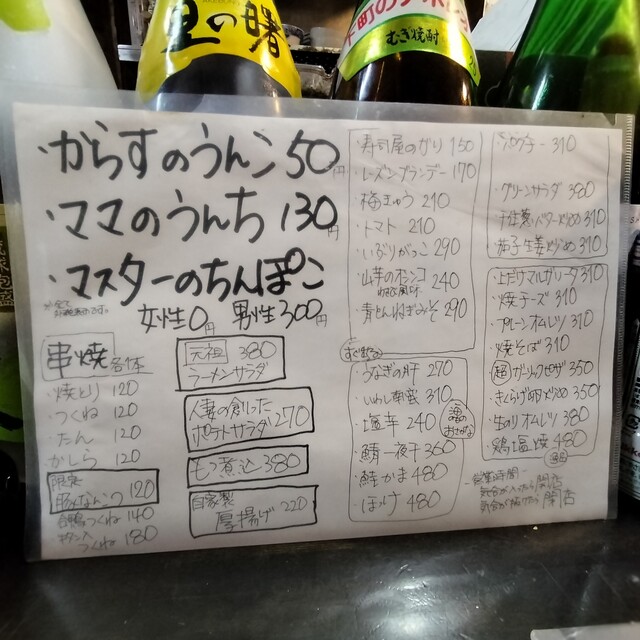 里の曙
むぎ焼酎
・からすのうんこ 50円
・ママのうんち 130円
・マスターのちんぽこ
女性0円 男性300円
串焼 各1本
・焼とり 120
・つくね 120
・たん 120
・かしら 120
豚なんこつ 120
つくね 140
つくね 180
元祖 380
ラーメンサラダ
人妻の創した
ポテトサラダ 270
もつ煮込 380
自家製
厚揚げ 220
・寿司屋のガリ 150
・レーズンブランデー 170
・梅きゅう 210
・トマト 210
・いぶりがっこ 290
240
・青とんねぎみそ 290
・うなぎの肝 270
310
・塩辛 240
・鯖一夜干 360
・鮭かま 480
・ほっけ 480
310
・グリーンサラダ 380
310
・茄子生姜炒め 310
310
・焼チーズ 310
・プレーンオムレツ 310
・焼そば 310
350
・きくらげ卵炒め 350
オムレツ 380
・鶏塩焼 480
営業時間
開店
閉店